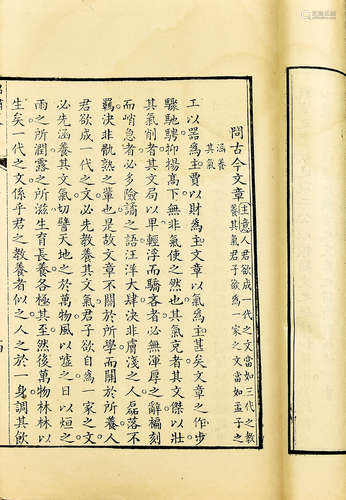 問古今文章
主意
人君欲成一代之文當如三代之教
養其氣君子欲爲一家之文當如孟子之
涵養
其氣
工以器爲主賈以財爲主文章以氣爲主甚矣文章之作步
驟馳騁抑揚高下無非氣使之然也其氣充者其文傑以壯
其氣削者其文局以卑輕浮而驕吝者必無渾厚之辭褊刻
而峭急者必多險譎之語汪洋大肆決非膚淺之人磊落不
羈決非骫骳之輩也是故文章不關於所學而關於所養人
君欲成一代之文必先教養其文氣君子欲自爲一家之文
必先涵養其文氣切譬天地之於萬物風以噓之日以烜之
雨之所潤露之所滋生育長養各極其至然後萬物林林以
生矣一代之文係乎君之教養者似之人之於一身調其飲